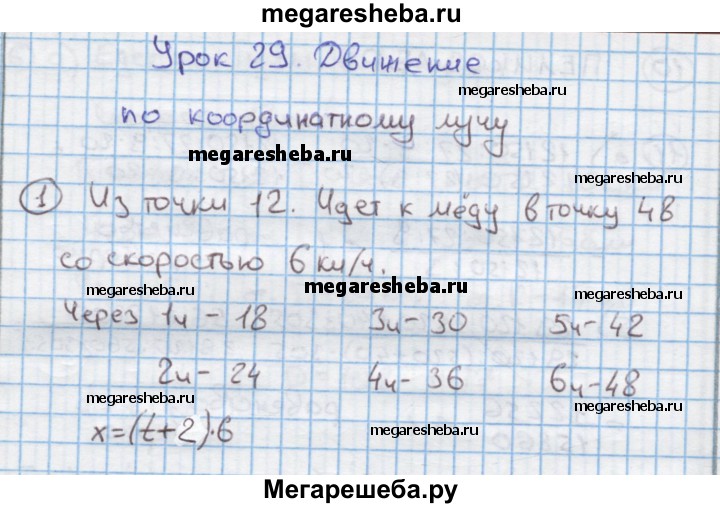 megaresheba.ru
Урок 29. Движение
megaresheba.ru
по координатному лучу
megaresheba.ru
1 Из точки 12. Идет к мёду в точку 48
megaresheba.ru
со скоростью 6 км/ч.
megaresheba.ru
megaresheba.ru megaresheba.ru
Через 1ч - 18 3ч - 30 5ч - 42
2ч - 24 4ч - 36 6ч - 48
megaresheba.ru megaresheba.ru
x=(t+2)·6 megaresheba.ru
Мегарешеба.ру